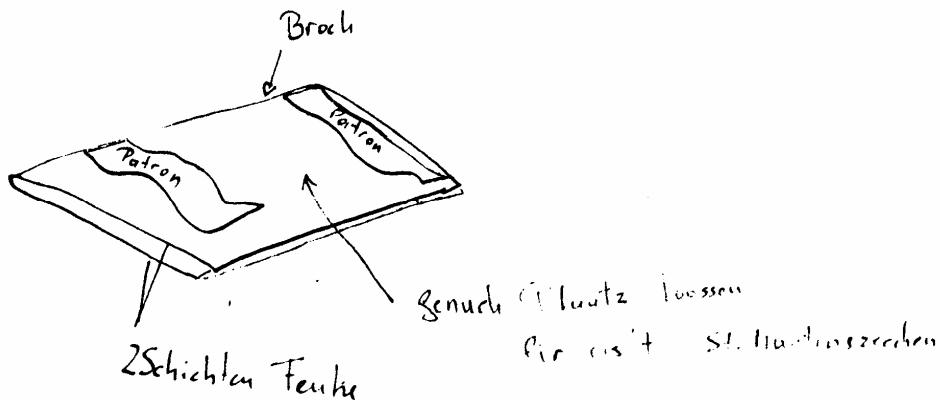 Broch
Patron
Patron
genuch Plaatz loossen
fir
2 Schichten